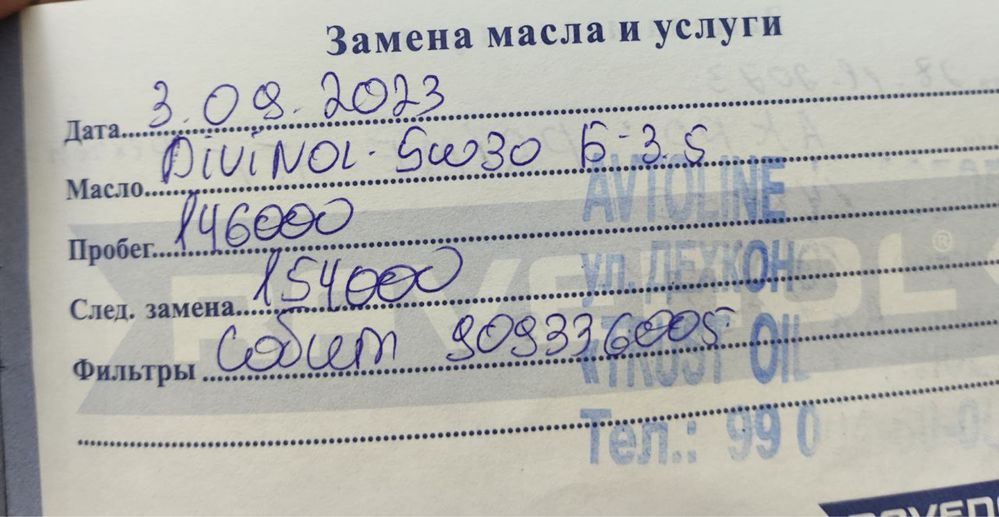 Замена масла и услуги
Дата 3.09.2023
Масло DiViNOL-5w30 Б-3.5
AVTOLINE
Пробег 146000
ул. ДЕХКОН
След. замена 154000
RAVENOL®
Фильтры Собит 909336005
«TRUST OIL
Тел.: 99 0
RAVENO